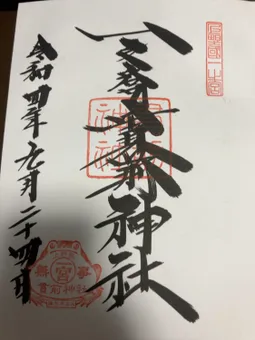 上野國一之宮
一之宮貫前神社
令和四年九月二十四日
貫前神社